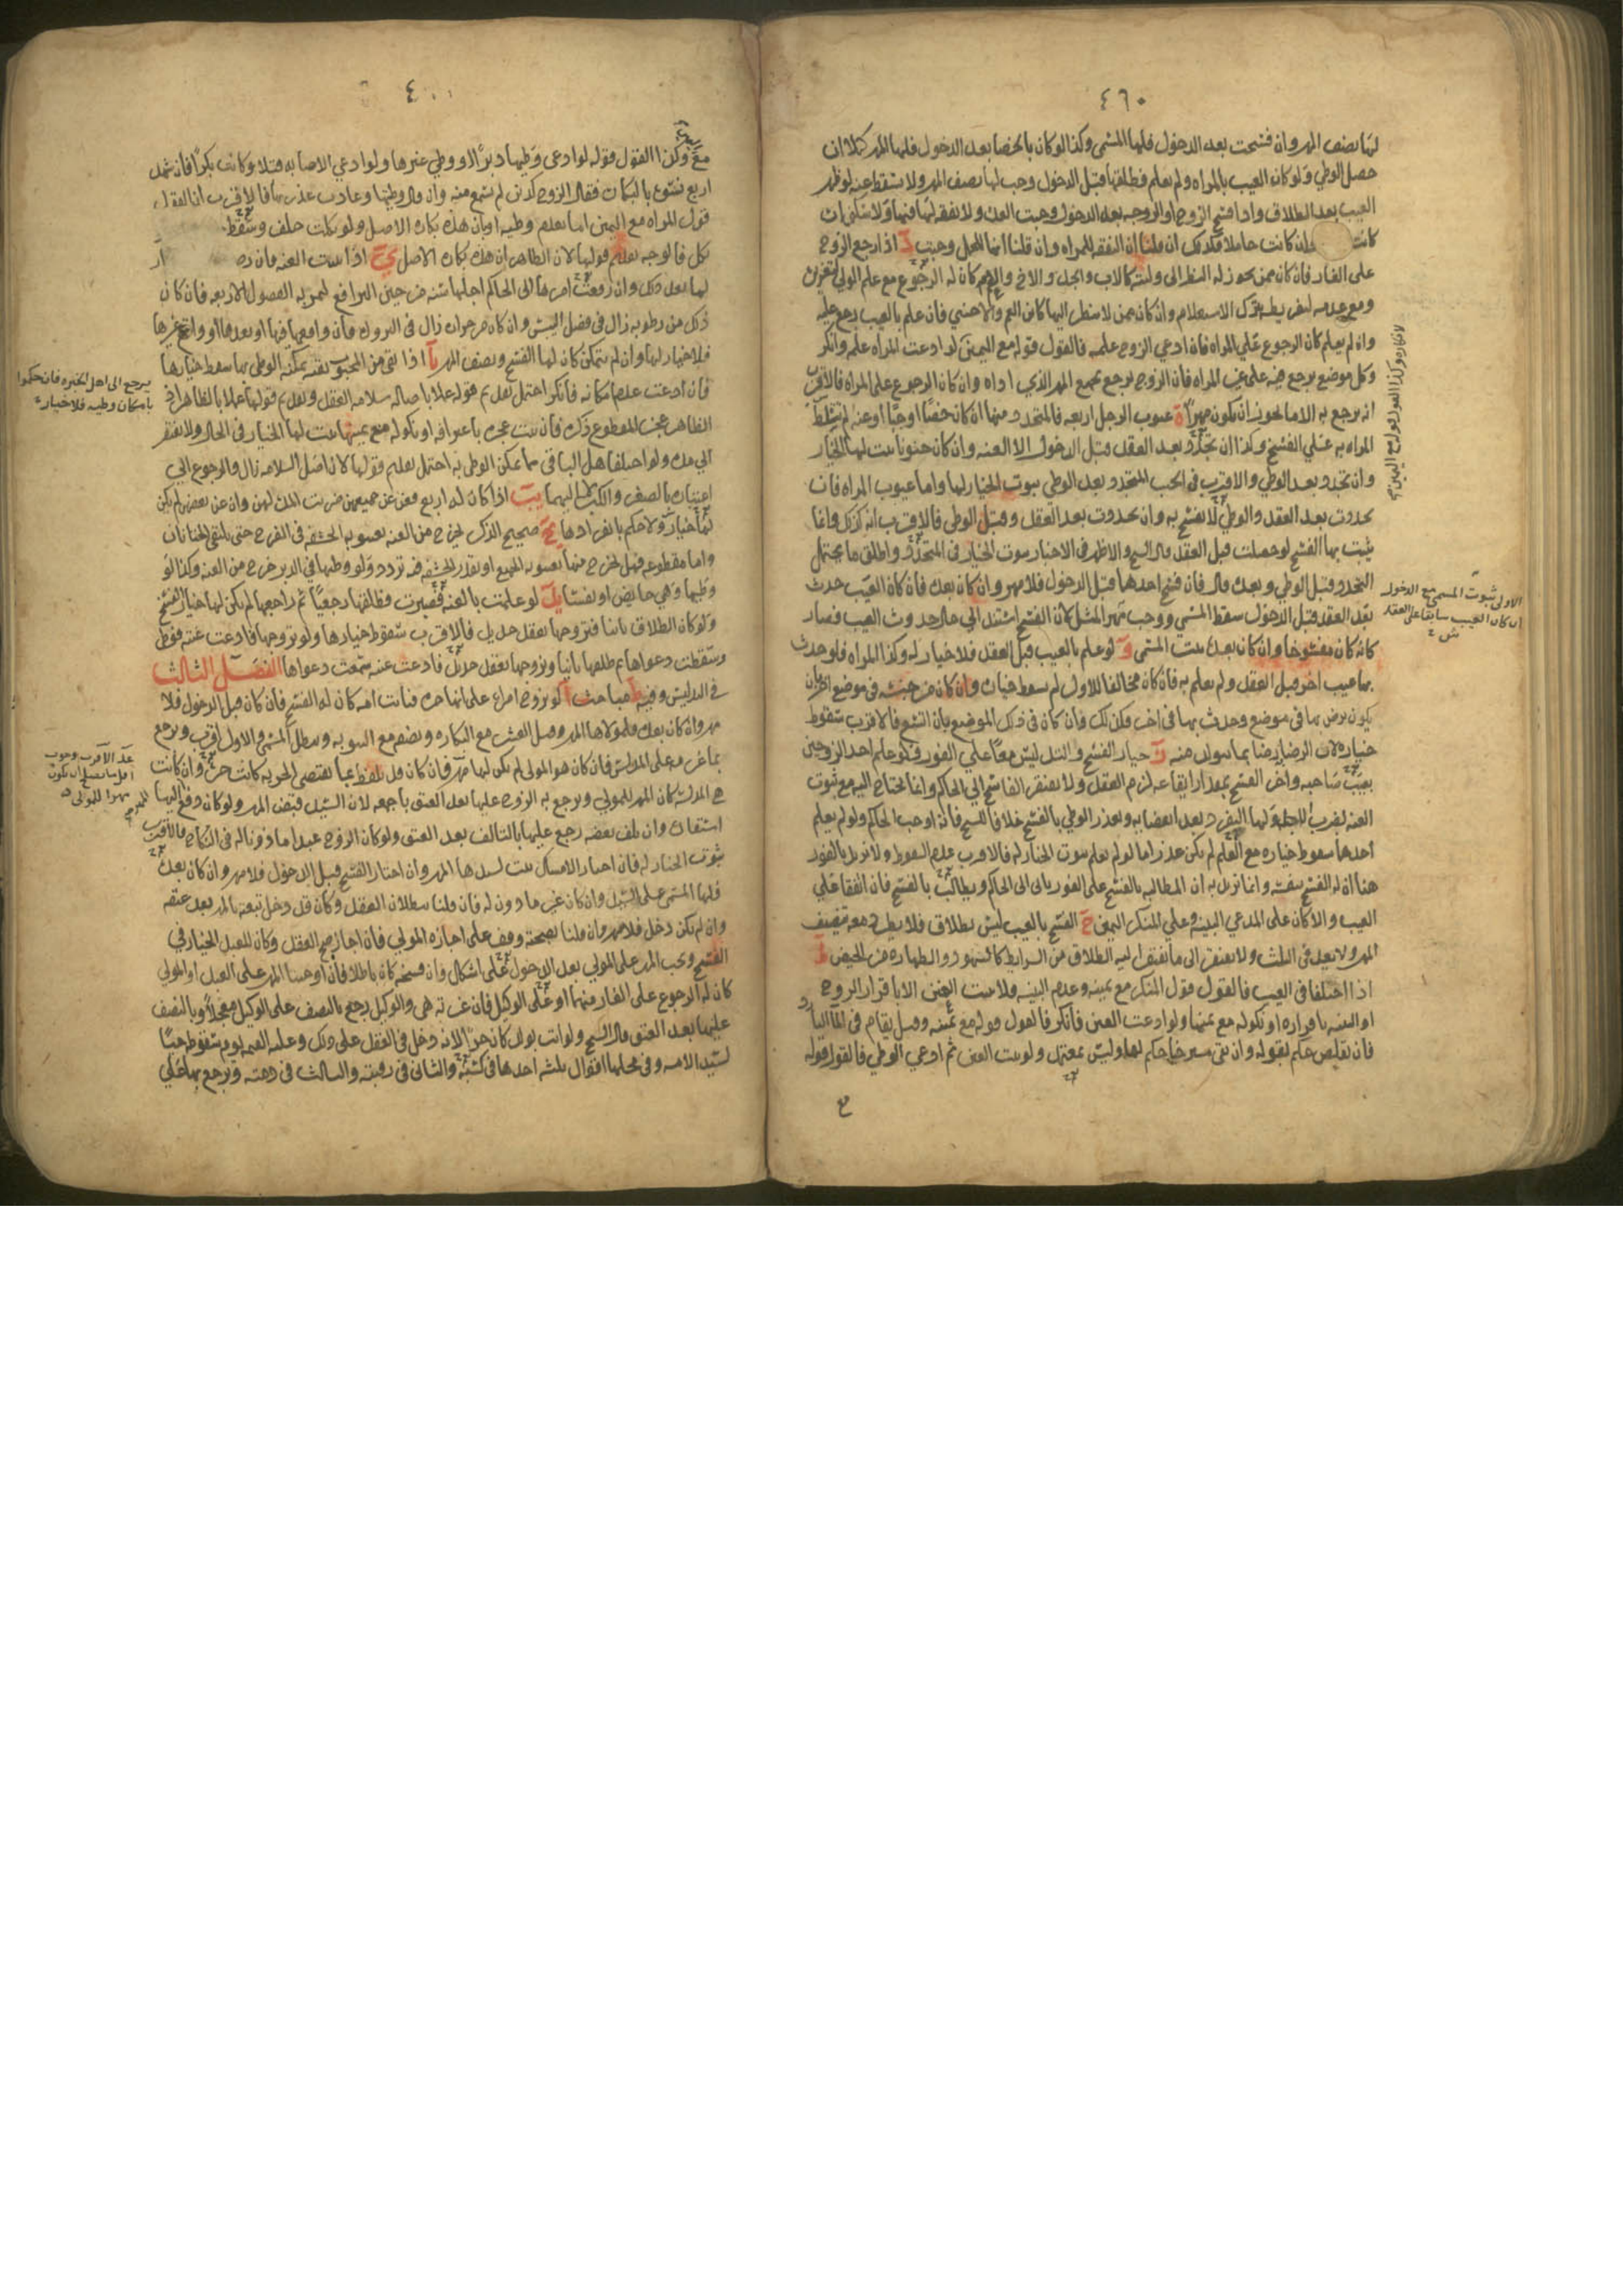 ٤٦٠
لها نصف المهر وان فسخت بعد الدخول فلها المسمى وكذا لو كان بالخصا بعد الدخول فلها المهر كملا ان
حصل الوطي ولو كان العيب بالمراه ولم يعلم فطلقها قبل الدخول وجب لها نصف المهر ولا يسقط عنه لو ظهر
العيب بعد الطلاق واذا فسخ الزوج او الزوجه بعد الدخول وجبت العده ولا نفقه لها فيها ولا سكنى ان
كانت وان كانت حاملا فكذلك ان قلنا ان النفقه للمراه وان قلنا انها للحمل وجبت د اذا رجع الزوج
على الغار فان كان ممن يجوز له النظر الى وليته كالاب والجد والاخ والعم كان له الرجوع مع علم الولي لتغريره
ومع عدمه لتفريطه بترك الاستعلام وان كان ممن لا ينظر اليها كابن العم والاجنبي فان علم بالعيب رجع عليه
وان لم يعلم كان الرجوع على المراه فان ادعى الزوج علمه فالقول قوله مع اليمين لو ادعت المراه علمه وانكر
وكل موضع يرجع فيه على غير المراه فان الزوج يرجع بجميع المهر الذي اداه وان كان الرجوع على المراه فالاقرب
انه يرجع به الا ما يجوز ان يكون مهرا ه عيوب الرجل اربعه فالمتجدد منها ان كان خصا او جبا او عنه لم تتسلط
المراه به على الفسخ وكذا ان تجدد بعد العقد قبل الدخول الا العنه وان كان جنونا ثبت لها الخيار
وان تجدد بعد الوطي والاقرب في الجب المتجدد بعد الوطي ثبوت الخيار لها واما عيوب المراه فان
تحددت بعد العقد والوطي لا يفسخ به وان تحددت بعد العقد وقبل الوطي فالاقرب انه كذلك وانما
يثبت بها الفسخ لو حصلت قبل العقد قال الشيخ والاظهر في الاخبار ثبوت الخيار في المتجدد واطلق ما يحتمل
التجدد قبل الوطي وبعده قال فان فسخ احدهما قبل الدخول فلا مهر وان كان بعده فان كان العيب حدث
بعد العقد قبل الدخول سقط المسمى ووجب مهر المثل لان الفسخ استند الى حال حدوث العيب فصار
كانه كان مفسوخا وان كان بعده ثبت المسمى و لو علم بالعيب قبل العقد فلا خيار له وكذا المراه فلو حدث
بها عيب اخر قبل العقد ولم يعلم به فان كان مخالفا للاول لم يسقط خياره وان كان من جنسه في موضع اخر بان
يكون برص بها في موضع وحدث بها في اخر فكذلك وان كان في ذلك الموضع بان اتسع فالاقرب سقوط
خياره لان الرضا به رضا بما يتولد منه ز خيار الفسخ والتدليس معا على الفور فلو علم احد الزوجين
بعيب صاحبه واخر الفسخ بمقدار ايقاعه لزم العقد ولا يفتقر الفاسخ الى الحاكم وانما يحتاج اليه مع ثبوت
العنه لضرب الاجل ولها التفرد بعد انقضائه وتعذر الوطي بالفسخ خلافا للشيخ فانه اوجب الحاكم ولو لم يعلم
احدهما سقوط خياره مع العلم لم يكن عذرا اما لو لم يعلم ثبوت الخيار له فالاقرب عدم السقوط ولا نريد بالفور
هنا ان له الفسخ بنفسه وانما نريد به ان المطالبه بالفسخ على الفور ياتي الى الحاكم ويطالب بالفسخ فان اتفقا على
العيب والا كان على المدعي البينه وعلى المنكر اليمين ح الفسخ بالعيب ليس بطلاق فلا يطرد معه تنصيف
المهر ولا يعد في الثلث ولا يفتقر الى ما يفتقر اليه الطلاق من الشرايط كالشهود والطهاره من الحيض ط
اذا اختلفا في العيب فالقول قول المنكر مع يمينه وعدم البينه ولا يثبت العنن الا باقرار الزوج
او البينه باقراره او نكوله مع يمينها ولو ادعت العنن فانكر فالقول قوله مع يمينه وقيل يقام في الماء البارد
فان تقلص حكم بقوله وان بقي مسترخيا حكم لها وليس بمعتمد ولو ثبت العنن ثم ادعى الوطي فالقول قوله
الاولى ثبوت المسمى مع الدخول
ان كان العيب سابقا على العقد
مع وكذا القول قوله لو ادعى وطيها دبرا او وطي غيرها ولو ادعى الاصابه قبلا وكانت بكرا فان شهد
اربع نسوه بالبكاره فقال الزوج كذبن لم يسمع منه وان قال وطيتها وعادت عذرتها فالاقرب ان القول
قول المراه مع اليمين انها بعدم وطيه او بان هذه بكاره الاصل ولو نكلت حلف وسقط
نكل فالوجه تقديم قولها لان الظاهر ان هذه بكاره الاصل ي اذا ثبت العنه فان
لها بعد ذلك وان رفعت امرها الى الحاكم اجلها سنه من حين الترافع لتمر به الفصول الاربعه فان كان
ذلك من رطوبه زال في فصل اليبس وان كان من حراره زال في البروده فان واقعها فيها او بعدها او واقع غيرها
فلا خيار لها وان لم يتمكن كان لها الفسخ ونصف المهر يا اذا بقي من المجبوب بقيه يمكنه الوطي بها سقط خيارها
فان ادعت عدم امكانه فانكر احتمل تقديم قوله عملا باصاله سلامه العقد وتقديم قولها عملا بالظاهر اذ
الظاهر عجز المقطوع ذكره فان ثبت عجزه باعترافه او نكوله مع يمينها ثبت لها الخيار في الحال ولا يفتقر
الى مده ولو اختلفا هل الباقي مما يمكن الوطي به احتمل تقديم قولها لان اصل السلامه زال والرجوع الى
اعتباره بالصغر والكبر اليهما يب اذا كان له اربع فعن عن جميعهن ضربت المده لهن وان عن بعضهن لم يكن
لها خيار ولا حكم بانفرادها يج صحيح الذكر يخرج من العنه بغيبوبه الحشفه في الفرج حتى يلتقي الختانان
واما مقطوعه فهل يخرج منها بغيبوبه الجميع او بقدر الحشفه فيه تردد ولو وطيها في الدبر خرج من العنه وكذا لو
وطيها وهي حايض او نفسا يد لو علمت بالعنه فصبرت وطلقها رجعيا ثم راجعها لم يكن لها خيار الفسخ
ولو كان الطلاق باينا فتزوجها بعقد جديد فالاقرب سقوط خيارها ولو تزوجها فادعت عنته فوطي
وسقطت دعواها ثم طلقها باينا وتزوجها بعقد جديد فادعت عنته سمعت دعواها الفصل الثالث
في التدليس وفيه مباحث ا لو تزوج امراه على انها حره فبانت امه كان له الفسخ فان كان قبل الدخول فلا
مهر وان كان بعده فلمولاها المهر وقيل العشر مع البكاره ونصفه مع الثيوبه ويبطل المسمى والاول اقرب ويرجع
بما غرمه على المدلس فان كان هو المولى لم يكن لها مهر فان كان قد تلفظ بما يقتضي الحريه كانت حره وان كانت
هي المدلسه كان المهر للمولى ويرجع به الزوج عليها بعد العتق باجمعه لان السيد قبض المهر ولو كان دفع المهر اليها
استعاده وان تلف بعضه رجع عليها بالتالف بعد العتق ولو كان الزوج عبدا ماذونا له في النكاح فالاقرب
ثبوت الخيار له فان اختار الامساك ثبت لسيدها المهر وان اختار الفسخ قبل الدخول فلا مهر وان كان بعده
فلها المسمى على السيد وان كان غير ماذون له فان قلنا ببطلان العقد وكان قد دخل تبعته بالمهر بعد عتقه
وان لم يكن دخل فلا مهر وان قلنا بصحته ووقف على اجازه المولى فان اجاز صح العقد وكان للعبد الخيار في
الفسخ ويجب المهر على المولى بعد الدخول على اشكال وان فسخه كان باطلا فان اوجبنا المهر على العبد او المولى
كان له الرجوع على الغار منهما او على الوكيل فان غرته هي والوكيل رجع بالنصف على الوكيل معجلا وبالنصف
عليها بعد العتق قال الشيخ ولو اتت بولد كان حرا لانه دخل في العقد على ذلك وعليه القيمه يوم سقوطه حيا
لسيد الامه وفي محلها اقوال ثلثه احدها في كسبه والثاني في رقبته والثالث في ذمته ويرجع بها على
يرجع الى اهل الخبره فان حكموا
بامكان وطيه فلا خيار